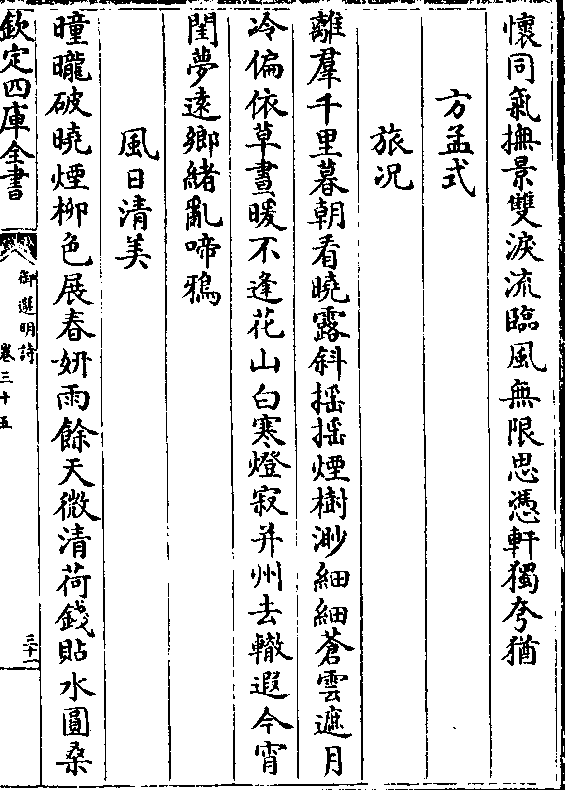 懷同氣撫景雙淚流臨風無限思憑軒獨夸猶
方孟式
旅况
離羣千里暮朝看曉露斜搖搖煙樹渺細細蒼雲遮月
冷偏依草晝暖不逢花山白寒燈寂并州去轍遐今宵
閨夢遠鄉緒亂啼鴉
風日清美
曈曨破曉煙柳色展春妍雨餘天微清荷錢貼水圓桑
欽定四庫全書
御選明詩
卷三十五
三十一